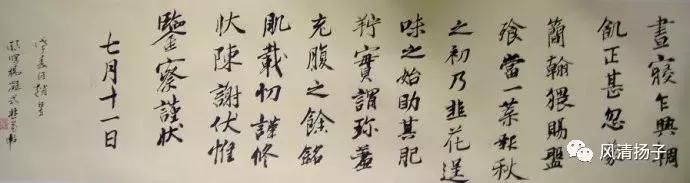 晝寢乍興輖
飢正甚忽蒙
簡翰猥賜盤
飧當一葉報秋
之初乃韭花逞
味之始助其肥
羜實謂珍羞
充腹之餘銘
肌載切謹修
狀陳謝伏惟
鑒察謹狀
七月十一日
楊凝式韭花帖
风清扬子